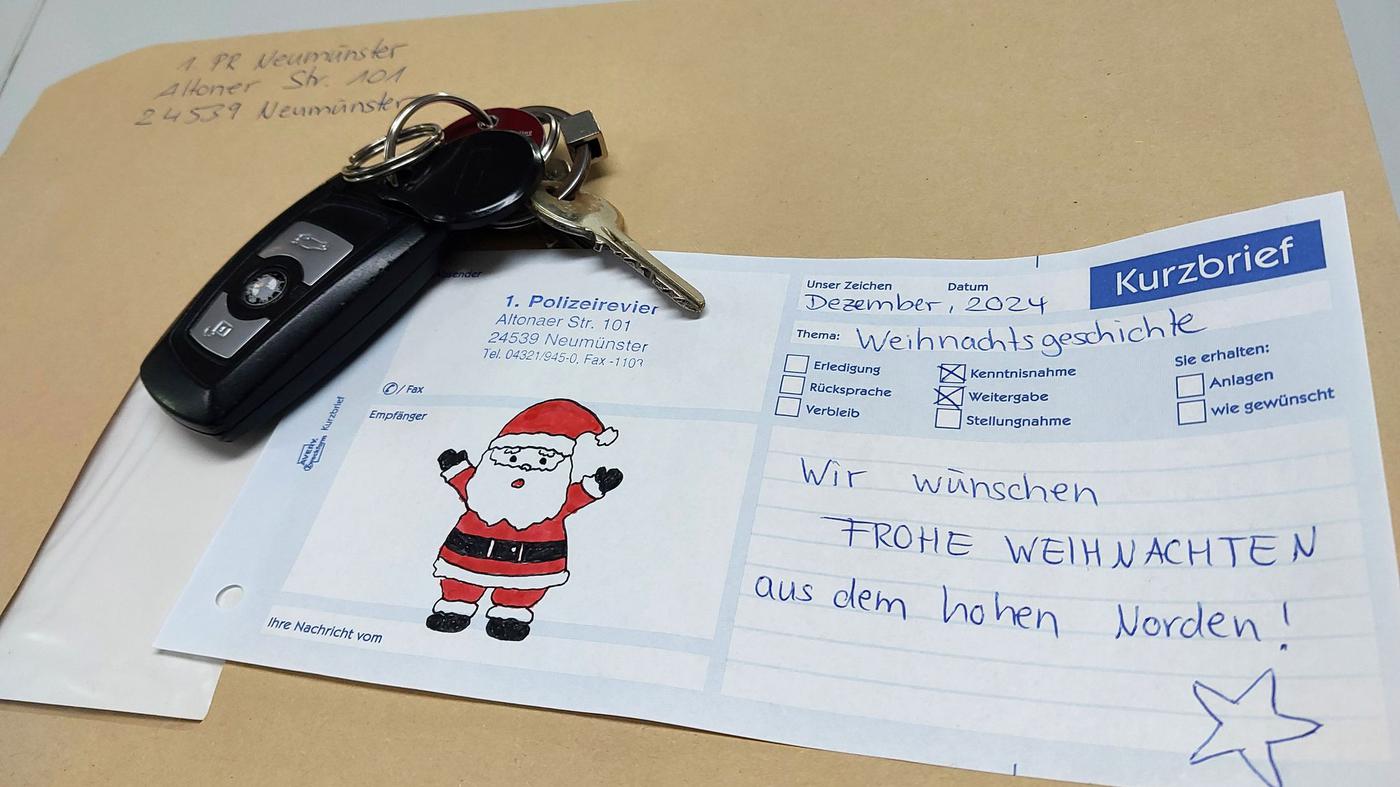 1. PR Neumünster
Altoner Str. 101
24539 Neumünster
Absender
1. Polizeirevier
Altonaer Str. 101
24539 Neumünster
Tel. 04321/945-0, Fax -1103
✆/ Fax
Empfänger
AVERY
Zweckform
Kurzbrief
Ihre Nachricht vom
Kurzbrief
Unser Zeichen Datum
Dezember, 2024
Thema: Weihnachtsgeschichte
Erledigung
Rücksprache
Verbleib
Kenntnisnahme
Weitergabe
Stellungnahme
Sie erhalten:
Anlagen
wie gewünscht
Wir wünschen
FROHE WEIHNACHTEN
aus dem hohen Norden!